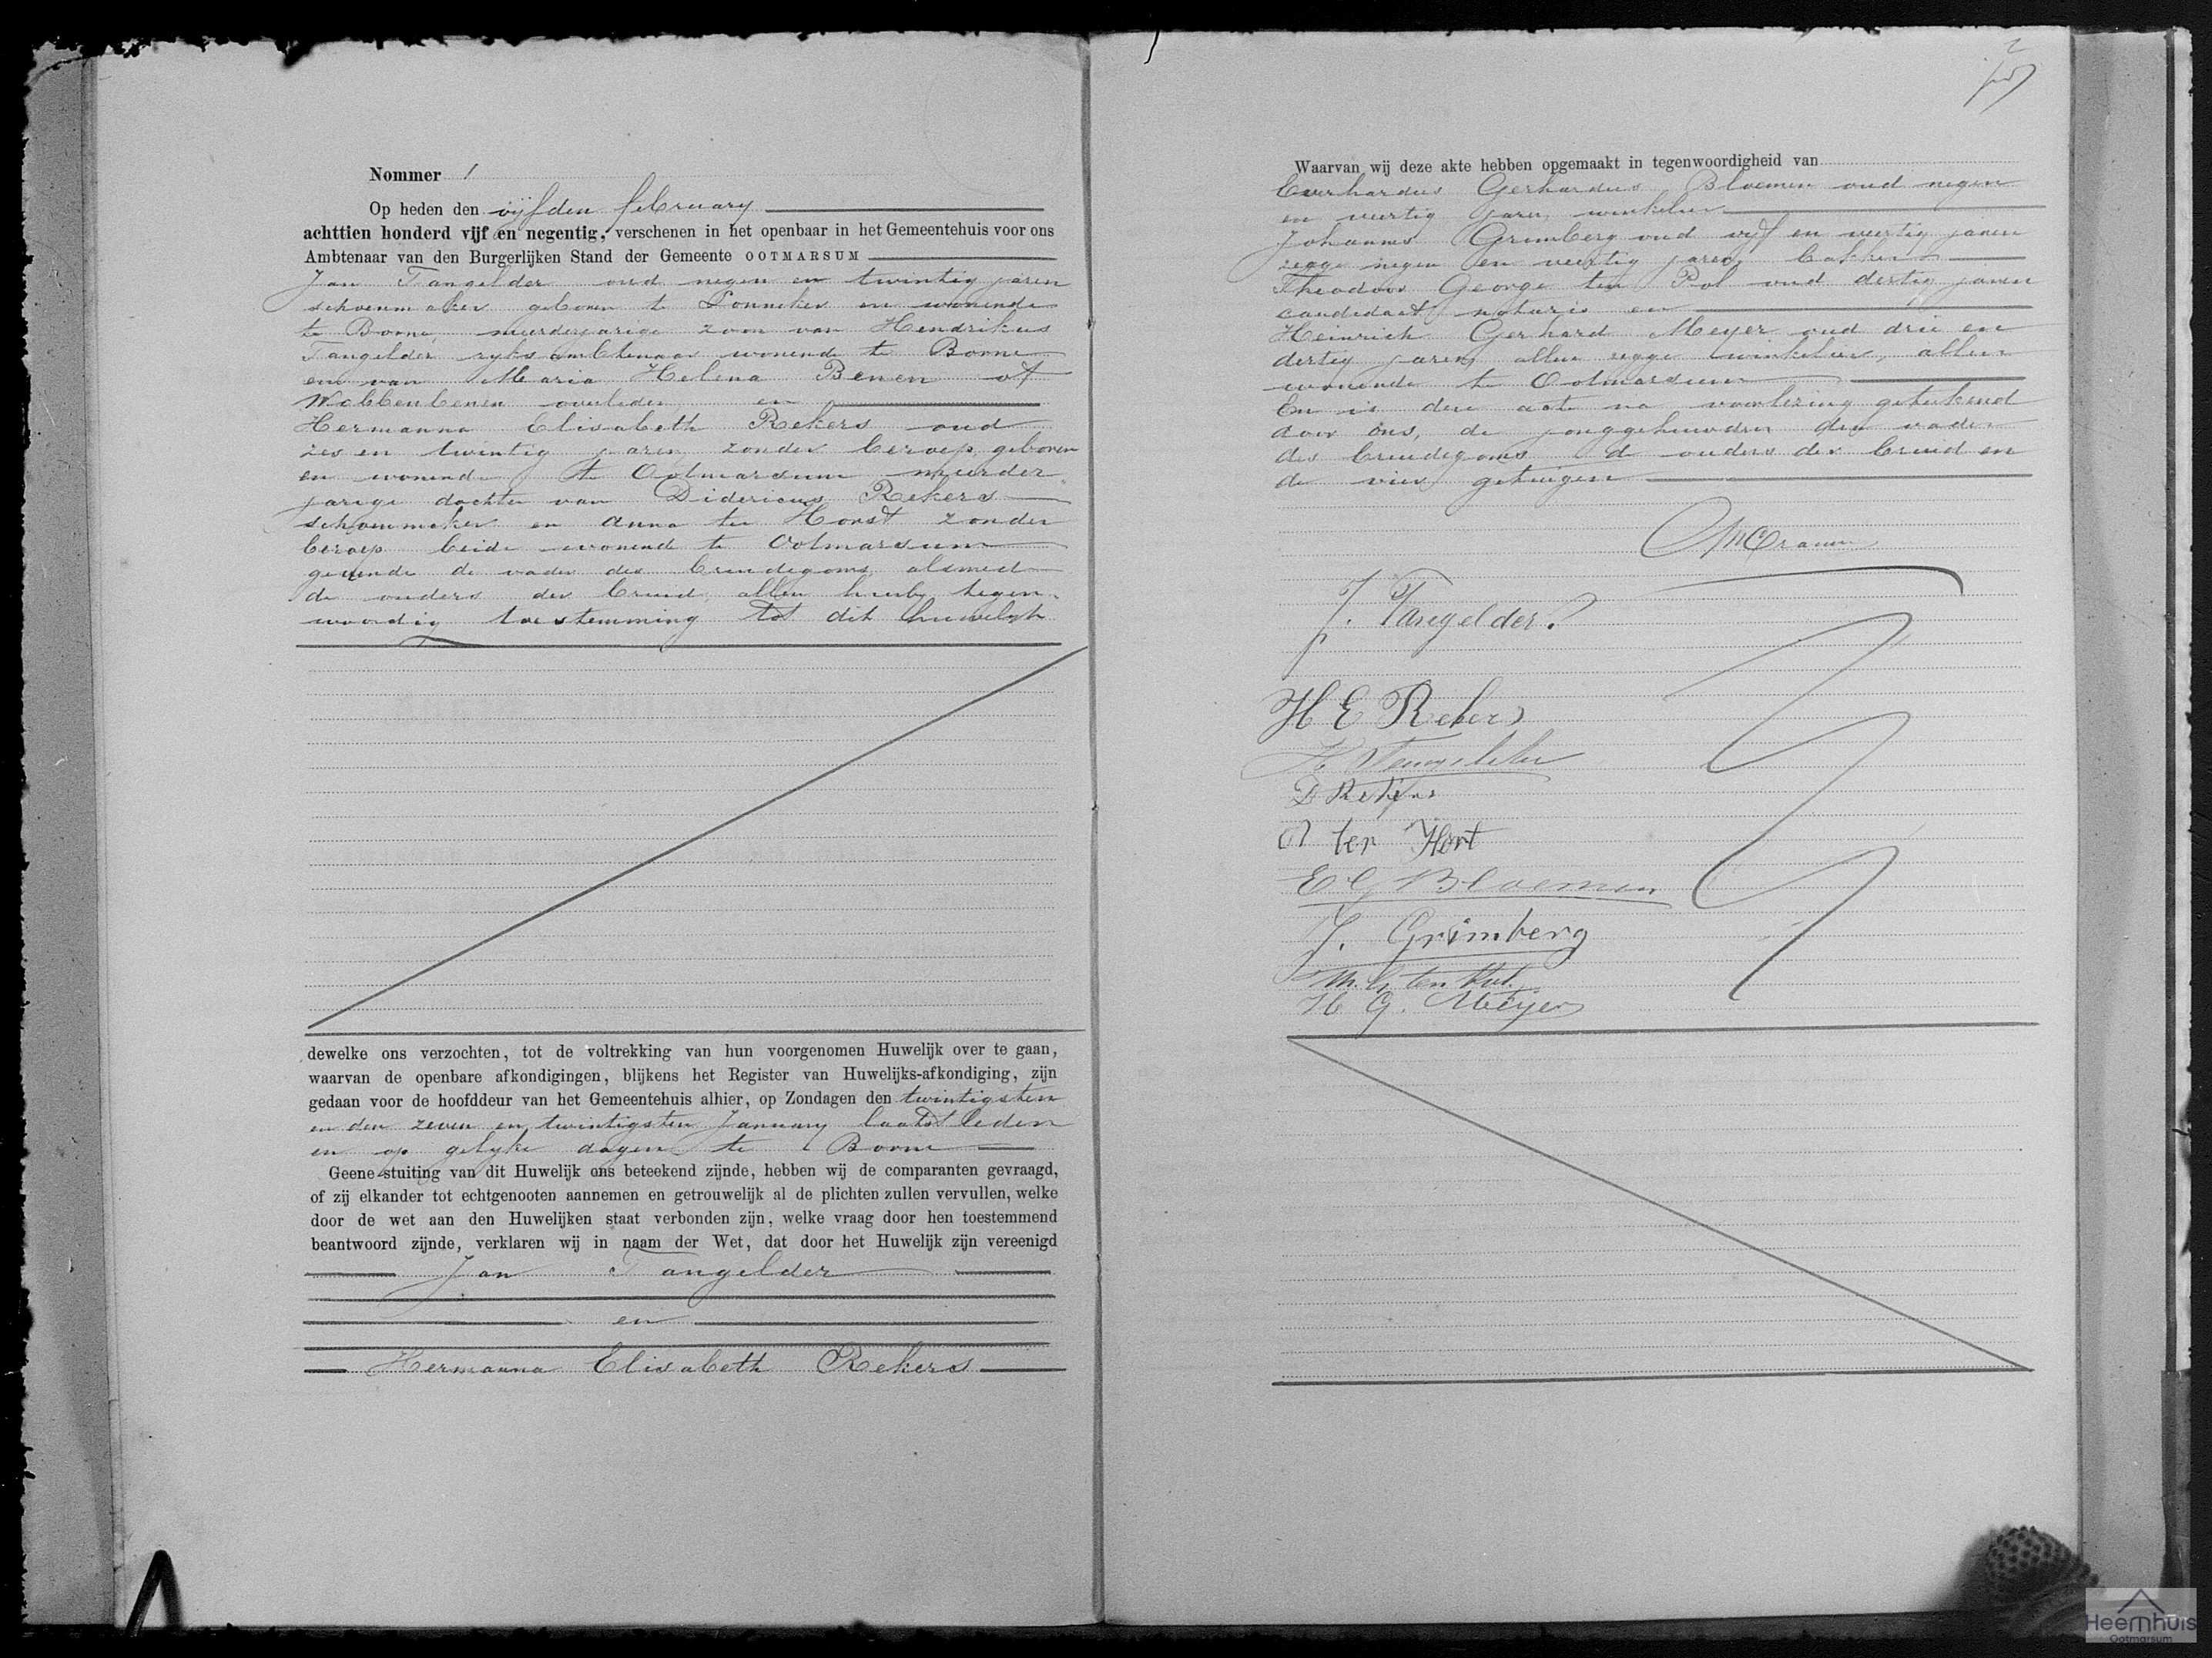 Nommer 1
Op heden den vijfden february
achttien honderd vijf en negentig, verschenen in het openbaar in het Gemeentehuis voor ons
Ambtenaar van den Burgerlijken Stand der Gemeente OOTMARSUM
Jan Tangelder oud negen en twintig jaren
schoenmaker geboren te Lonneker en wonende
te Borne, meerderjarige zoon van Hendrikus
Tangelder rijksambtenaar wonende te Borne
en van Maria Helena Benen of
Wobbenbenen overleden en
Hermanna Elisabeth Rekers oud
zes en twintig jaren, zonder beroep, geboren
en wonende te Ootmarsum meerder-
jarige dochter van Didericus Rekers
schoenmaker en Anna ter Horst zonder
beroep beide wonend te Ootmarsum
gevende de vader des bruidegoms, alsmede
de ouders der bruid, allen hierbij tegen-
woordig toestemming tot dit huwelijk
dewelke ons verzochten, tot de voltrekking van hun voorgenomen Huwelijk over te gaan,
waarvan de openbare afkondigingen, blijkens het Register van Huwelijks-afkondiging, zijn
gedaan voor de hoofddeur van het Gemeentehuis alhier, op Zondagen den twintigsten
en den zeven en twintigsten January laatstleden
en op gelijke dagen te Borne
Geene stuiting van dit Huwelijk ons beteekend zijnde, hebben wij de comparanten gevraagd,
of zij elkander tot echtgenooten aannemen en getrouwelijk al de plichten zullen vervullen, welke
door de wet aan den Huwelijken staat verbonden zijn, welke vraag door hen toestemmend
beantwoord zijnde, verklaren wij in naam der Wet, dat door het Huwelijk zijn vereenigd
Jan Tangelder
en
Hermanna Elisabeth Rekers
2
Waarvan wij deze akte hebben opgemaakt in tegenwoordigheid van
Everhardus Gerhardus Bloemen oud negen
en veertig jaren, winkelier
Johannes Grimberg oud vijf en veertig jaren
zegge negen en veertig jaren, bakker
Theodoor George ten Pol oud dertig jaren
candidaat notaris en
Heinrich Gerhard Meyer oud drie en
dertig jaren, allen zegge winkelier, allen
wonende te Ootmarsum
En is deze acte na voorlezing geteekend
door ons, de jonggehuwden den vader
des bruidegoms de ouders der bruid en
de vier getuigen
J. Tangelder
H E Rekers
H Tangelder
D Rekers
A ter Hort
E G Bloemen
J. Grimberg
Th. G. ten Pol.
H G. Meijer
Heemhuis
Ootmarsum